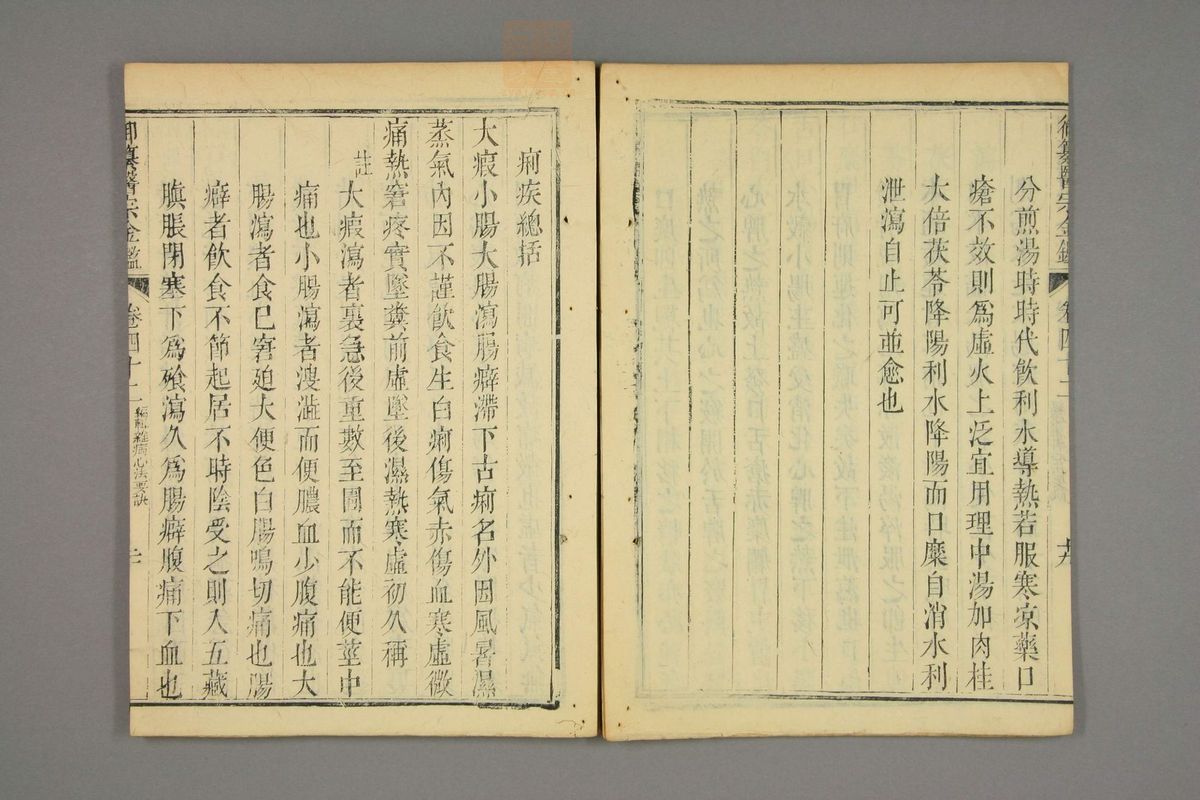 分煎湯時時代飲利水導熱若服寒凉藥口
瘡不效則爲虛火上泛宜用理中湯加肉桂
大倍茯苓降陽利水降陽而口糜自消水利
泄瀉自止可並愈也
痢疾總括
大瘕小腸大腸瀉腸癖滯下古痢名外因風暑濕
蒸氣內因不謹飲食生白痢傷氣赤傷血寒虛微
痛熱窘疼實墜糞前虛墜後濕熱寒虛初久稱
註大瘕瀉者裏急後重數至圊而不能便莖中
痛也小腸瀉者溲澁而便膿血少腹痛也大
腸瀉者食已窘廹大便色白腸鳴切痛也腸
癖者飲食不節起居不時陰受之則入五藏
䐜脹閉塞下爲飱瀉久爲腸癖腹痛下血也
御纂醫宗金鑑
卷四十二
編輯雜病心法要訣